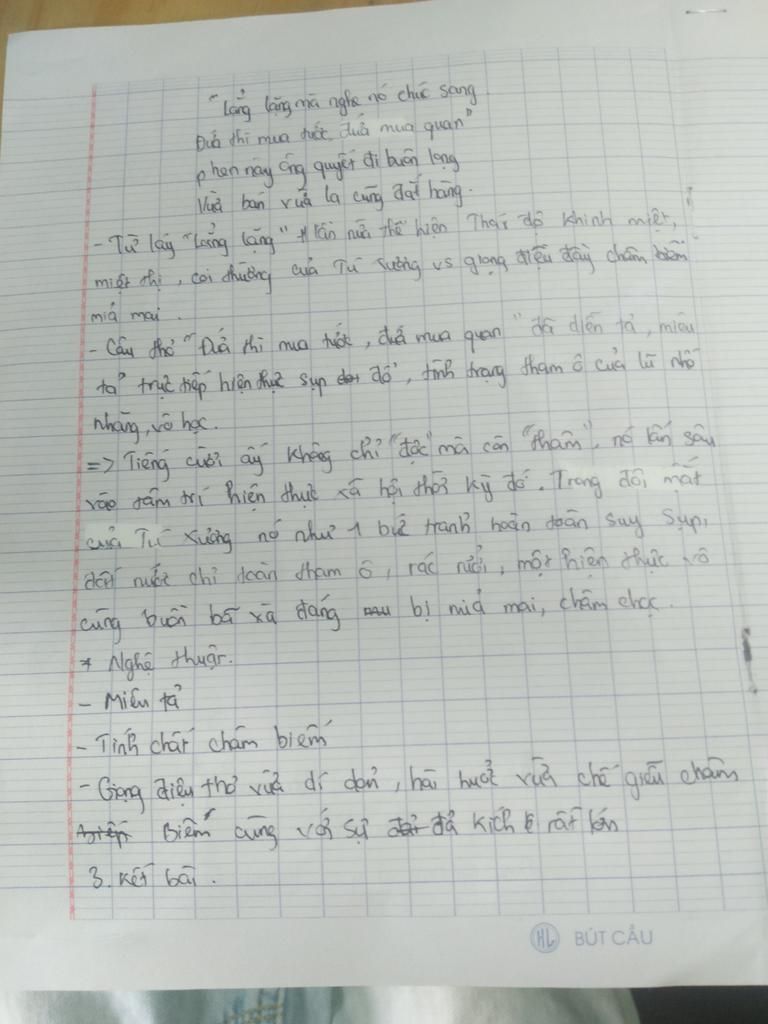 "Lẳng lặng mà nghe nó chúc sang
Đứa thì mua tước, đứa mua quan"
phen này ông quyết đi buôn lọng
Vừa bán vừa la cũng đắt hàng.
- Từ láy "Lẳng lặng" 1 lần nữa thể hiện Thái độ khinh miệt,
miệt thị, coi thường của Tú Xương vs giọng điệu đầy châm biếm
mỉa mai.
- Câu thơ "Đứa thì mua tước, đứa mua quan" đã diễn tả, miêu
tả trực tiếp hiện thực sụp đổ, tình trạng tham ô của lũ nhố
nhăng, vô học.
=> Tiếng cười ấy không chỉ "độc" mà còn "thâm", nó lấn sâu
vào tâm trí hiện thực xã hội thời kỳ đó. Trong đôi mắt
của Tú Xương nó như 1 bức tranh hoàn toàn suy sụp,
đất nước chỉ toàn tham ô, rác rưởi, một hiện thực vô
cùng buồn bã và đáng bị mỉa mai, châm chọc.
* Nghệ thuật.
- Miêu tả
- Tính chất châm biếm
- Giọng điệu thơ vừa dí dỏm, hài hước vừa chế giễu châm
biếm cùng với sự đả kích rất lớn
3. Kết bài.
HL BÚT CẦU